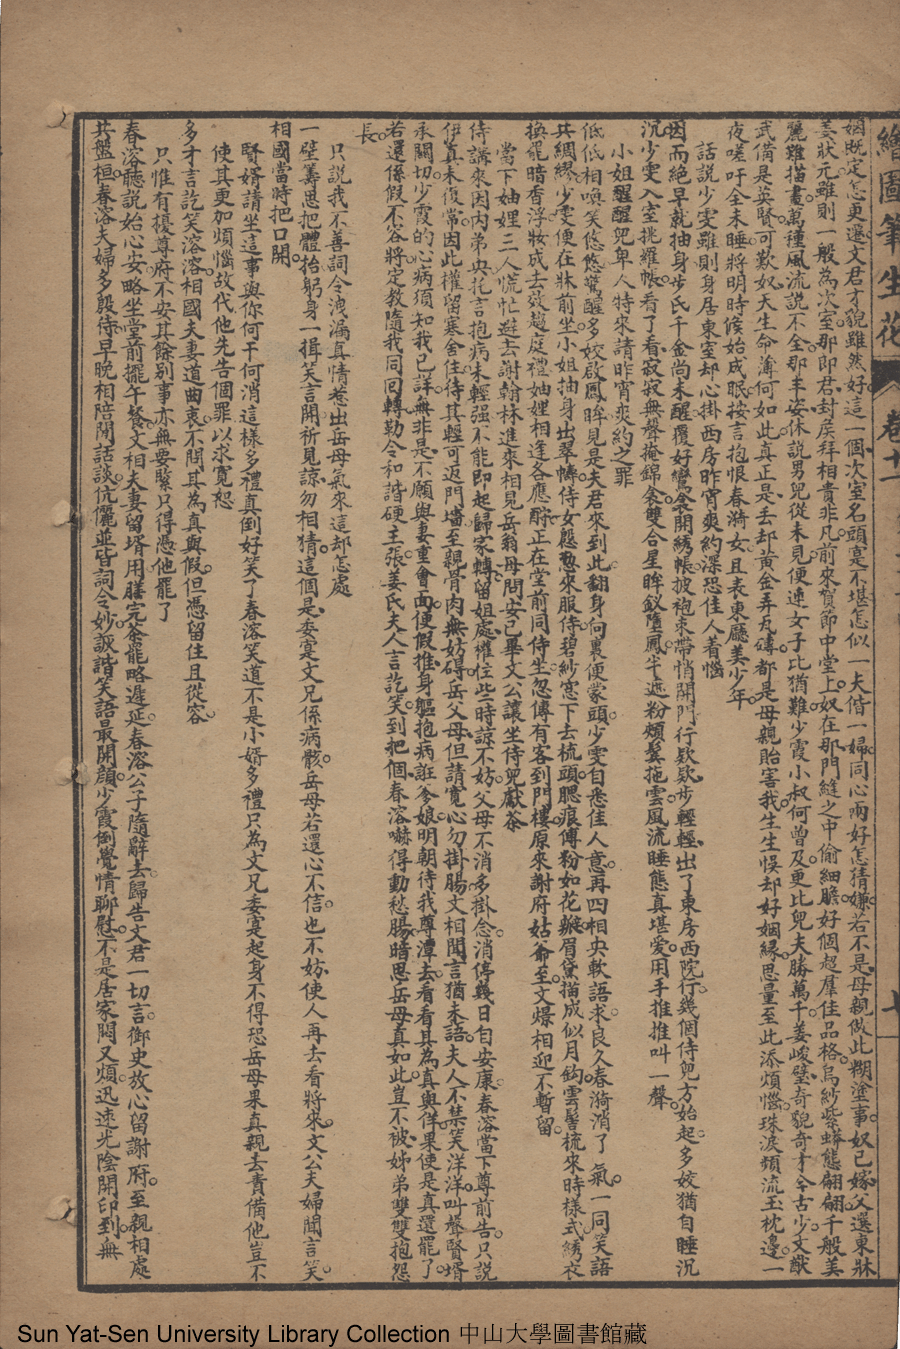 繪圖筆生花 卷十一
姻既定怎更還文君才貌雖然好這一個次室名頭寔不堪怎似一夫偕一婦同心兩好怎猜嫌若不是母親做此糊塗事奴已嫁父選東牀
姜狀元雖則一般為次室那即君封侯拜相貴非凡前來賀節中堂上奴在那門縫之中偷細瞻好個超羣佳品格烏紗紫蟒態翩翩千般美
麗難描畫萬種風流說不全那丰姿休說男兒從未見便連女子比猶難少霞小叔何曾及更比兒夫勝萬千姜峻璧奇貌奇才今古少文猷
武備是英賢可歎奴天生命薄何如此真正是丢却黃金弄瓦磚都是母親貽害我生生悞却好姻緣思量至此添煩惱珠淚頻流玉枕邊一
夜嗟吁全未睡將明時候始成眠按言抱恨春漪女且表東廳美少年
話說少雯雖則身居東室却心掛西房昨宵爽約深恐佳人着惱
因而絕早就抽身步氏千金尚未醒覆好鸞衾開綉帳披袍束帶悄開門行欵欵步輕輕出了東房西院行幾個侍兒方始起多姣猶自睡沉
沉少雯入室挑羅帳看了看寂寂無聲掩錦衾雙合星眸釵墮鳳半遮粉頰鬂拖雲風流睡態真堪愛用手推推叫一聲
小姐醒醒兒卑人特來請昨宵爽約之罪
低低相喚笑悠悠驚醒多姣啟鳳眸見是夫君來到此翻身向裏便蒙頭少雯自悉佳人意再四相央軟語求良久春漪消了氣一同笑語
共綢繆少雯便在牀前坐小姐抽身出翠幬侍女慇懃來服侍碧紗窓下去梳頭腮痕傅粉如花瓣眉黛描成似月鈎雲髻梳來時樣式綉衣
換罷暗香浮妝成去效趨庭禮妯娌相逢各應酧正在堂前同侍坐忽傳有客到門樓原來謝府姑爺至文燝相迎不暫留
當下妯娌三人慌忙避去謝翰林進來相見岳翁母問安已畢文公讓坐侍兒獻茶
侍講來因內弟央托言抱病未輕强不能即起歸家轉留姐處權住些時諒不妨父母不消多掛念消停幾日自安康春溶當下尊前告只說
伊真未復常因此權留寒舍住待其輕可返門墻至親骨肉無妨碍岳父母但請寬心勿掛腸文相聞言猶未語夫人不禁笑洋洋叫聲賢壻
承關切少霞的心病須知我已詳無非是不願與妻重會面便假推身軀抱病誑爹娘明朝待我尊潭去看看其為真與佯果使是真還罷了
若還係假不容將定教隨我同回轉勒令和諧硬主張姜氏夫人言訖笑到把個春溶嚇得動愁腸暗思岳母真如此豈不被姊弟雙雙抱怨
長
只說我不善詞令洩漏真情惹出岳母氣來這却怎處
一壁籌思把體抬躬身一揖笑言開祈見諒勿相猜這個是委寔文兄係病骸岳母若還心不信也不妨使人再去看將來文公夫婦聞言笑
相國當時把口開
賢婿請坐這事與你何干何消這樣多禮真到好笑了春溶笑道不是小婿多禮只為文兄委寔起身不得恐岳母果真親去責備他豈不
使其更加煩惱故代他先告個罪以求寬恕
多才言訖笑溶溶相國夫妻道曲衷不問其為真與假但憑留住且從容
只惟有擾尊府不安其餘别事亦無要緊只得憑他罷了
春溶聽說始心安略坐堂前擺午餐文相夫妻留壻用膳完余罷略遲延春溶公子隨辭去歸告文君一切言御史放心留謝府至親相處
共盤桓春溶夫婦多殷待早晚相陪閒話談伉儷並皆詞令妙詼諧笑語最開顏少霞倒覺情聊慰不是居家悶又煩迅速光陰開印到無
Sun Yat-Sen University Library Collection 中山大學圖書館藏